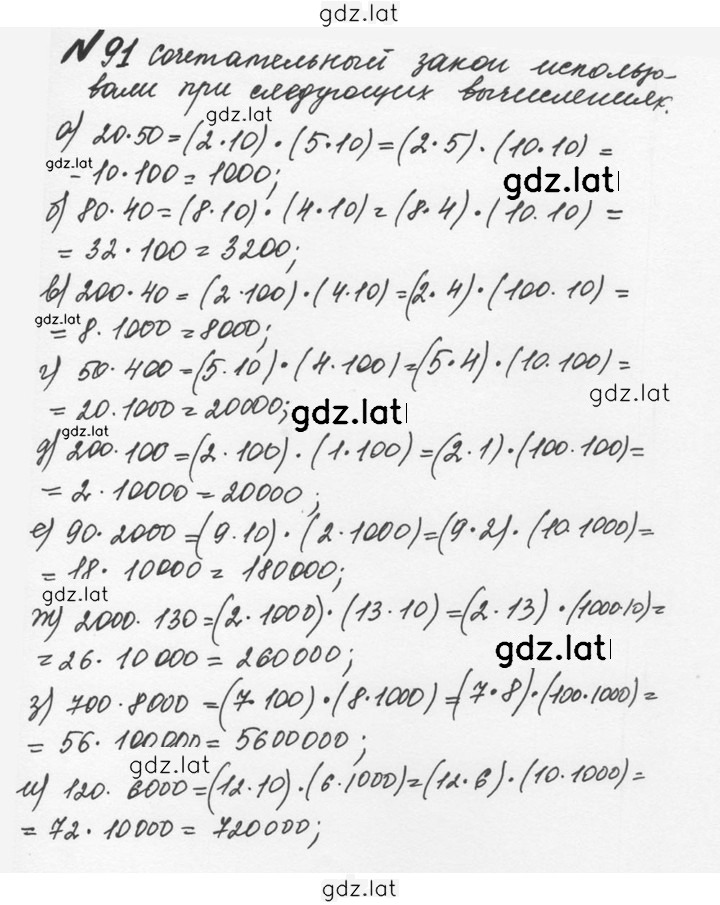 gdz.lat
№91 Сочетательный закон использо-
вали при следующих вычислениях.
gdz.lat
а) 20·50=(2·10)·(5·10)=(2·5)·(10·10)=
gdz.lat
=10·100=1000;
gdz.lat
б) 80·40=(8·10)·(4·10)=(8·4)·(10·10)=
=32·100=3200;
в) 200·40=(2·100)·(4·10)=(2·4)·(100·10)=
gdz.lat
=8·1000=8000;
г) 50·400=(5·10)·(4·100)=(5·4)·(10·100)=
gdz.lat
=20·1000=20000;
gdz.lat
gdz.lat
д) 200·100=(2·100)·(1·100)=(2·1)·(100·100)=
=2·10000=20000;
е) 90·2000=(9·10)·(2·1000)=(9·2)·(10·1000)=
=18·10000=180000;
gdz.lat
ж) 2000·130=(2·1000)·(13·10)=(2·13)·(1000·10)=
=26·10000=260000;
gdz.lat
з) 700·8000=(7·100)·(8·1000)=(7·8)·(100·1000)=
=56·100000=5600000;
gdz.lat
и) 120·6000=(12·10)·(6·1000)=(12·6)·(10·1000)=
=72·10000=720000;
gdz.lat